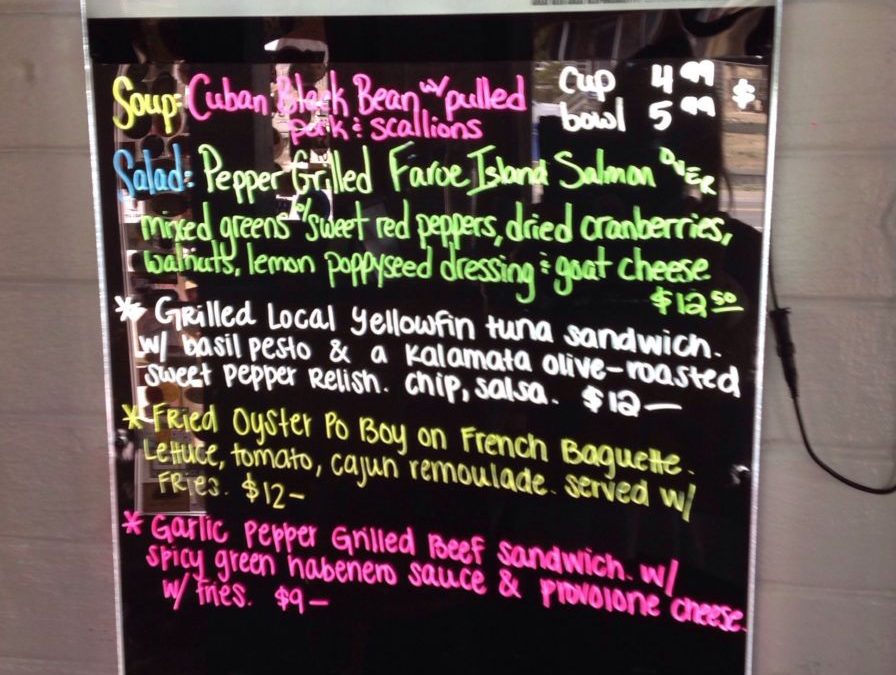 Soup: Cuban Black Bean w/ pulled pork & scallions
cup 4.99
bowl 5.99 $
Salad: Pepper Grilled Faroe Island Salmon OVER
mixed greens w/ sweet red peppers, dried cranberries,
walnuts, lemon poppyseed dressing & goat cheese
$12.50
* Grilled Local Yellowfin tuna sandwich.
w/ basil pesto & a kalamata olive-roasted
sweet pepper relish. chip, salsa. $12—
* Fried Oyster Po Boy on French Baguette.
Lettuce, tomato, cajun remoulade. served w/
Fries. $12-
* Garlic Pepper Grilled Beef sandwich. w/
spicy green habenero sauce & provolone cheese.
w/ fries. $9—